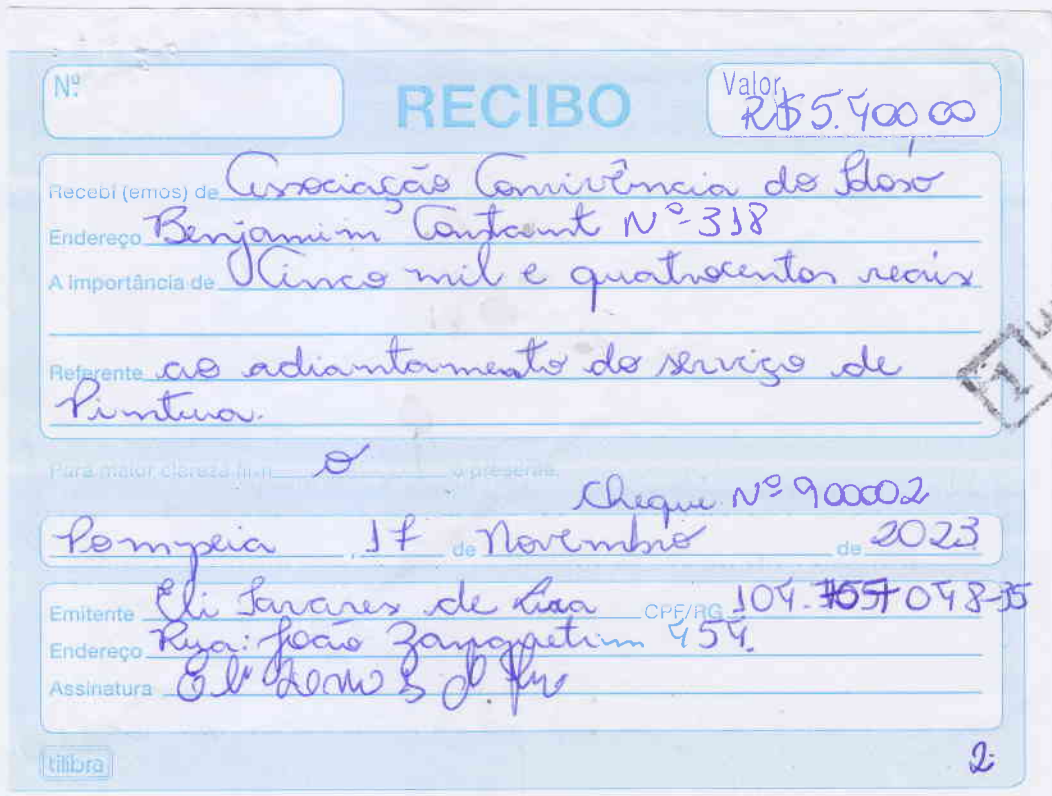 Nº
RECIBO
Valor R$ 5.400,00
Recebi (emos) de Associação Convivência do Idoso
Endereço Benjamim Constant Nº 318
A importância de Cinco mil e quatrocentos reais
Referente ao adiantamento do serviço de
Pintura.
Para maior clareza firm o o presente.
Cheque Nº 900002
Pompeia, 17 de Novembro de 2023
Emitente Eli Tavares de Lira CPF/RG 104. 048-35
Endereço Rua: João Zanggetim 454.
Assinatura
tilibra
2